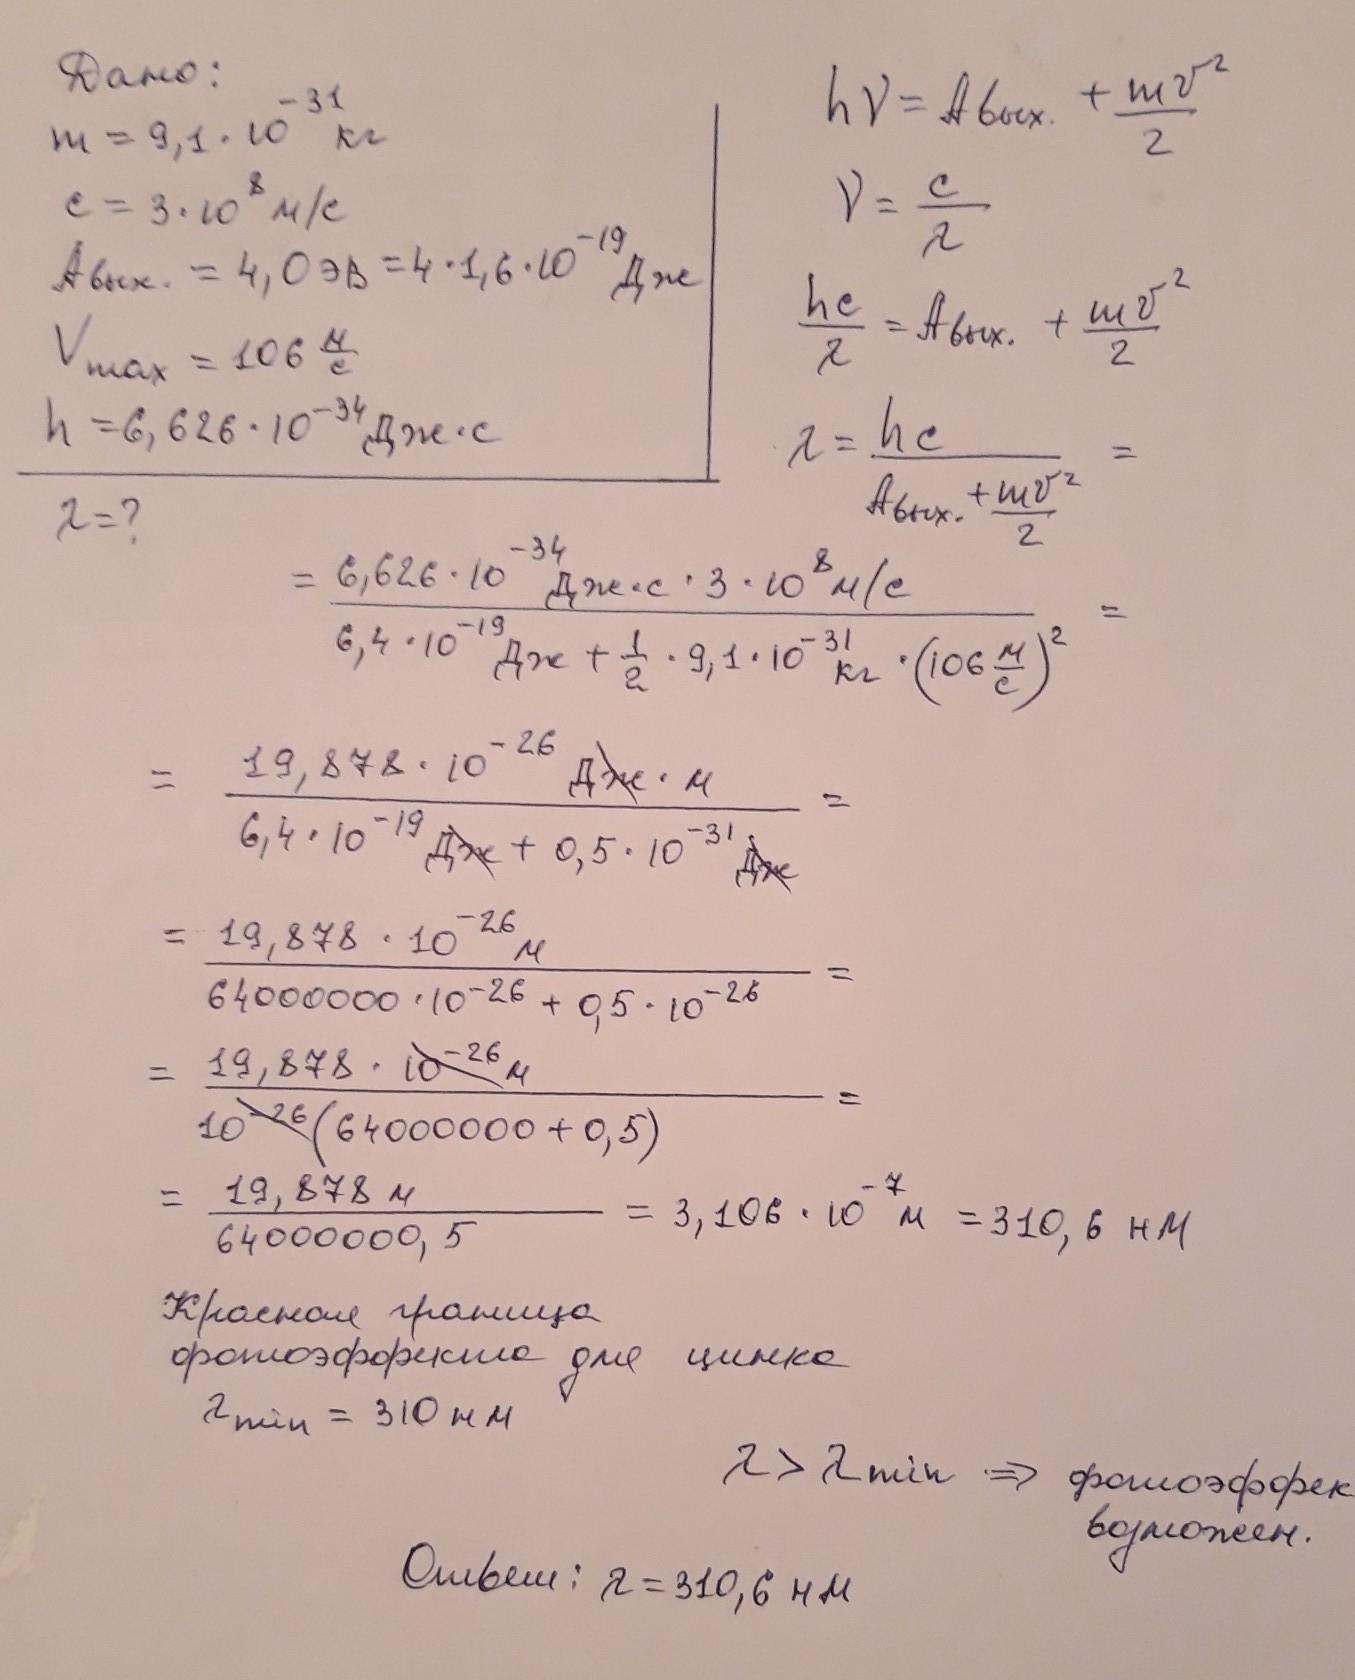 Дано:
m = 9,1 · 10^-31 кг
c = 3 · 10^8 м/с
Aвых. = 4,0 эВ = 4 · 1,6 · 10^-19 Дж
Vmax = 106 м/с
h = 6,626 · 10^-34 Дж · с
λ = ?
hν = Aвых. + mv²/2
ν = c/λ
hc/λ = Aвых. + mv²/2
λ = hc/(Aвых. + mv²/2) =
= (6,626 · 10^-34 Дж · с · 3 · 10^8 м/с)/(6,4 · 10^-19 Дж + 1/2 · 9,1 · 10^-31 кг · (106 м/с)²) =
= (19,878 · 10^-26 Дж · м)/(6,4 · 10^-19 Дж + 0,5 · 10^-31 Дж) =
= (19,878 · 10^-26 м)/(64000000 · 10^-26 + 0,5 · 10^-26) =
= (19,878 · 10^-26 м)/(10^-26 (64000000 + 0,5)) =
= (19,878 м)/(64000000,5) = 3,106 · 10^-7 м = 310,6 нм
Красная граница
фотоэффекта для цинка
λmin = 310 нм
λ > λmin ⇒ фотоэффек
возможен.
Ответ: λ = 310,6 нм